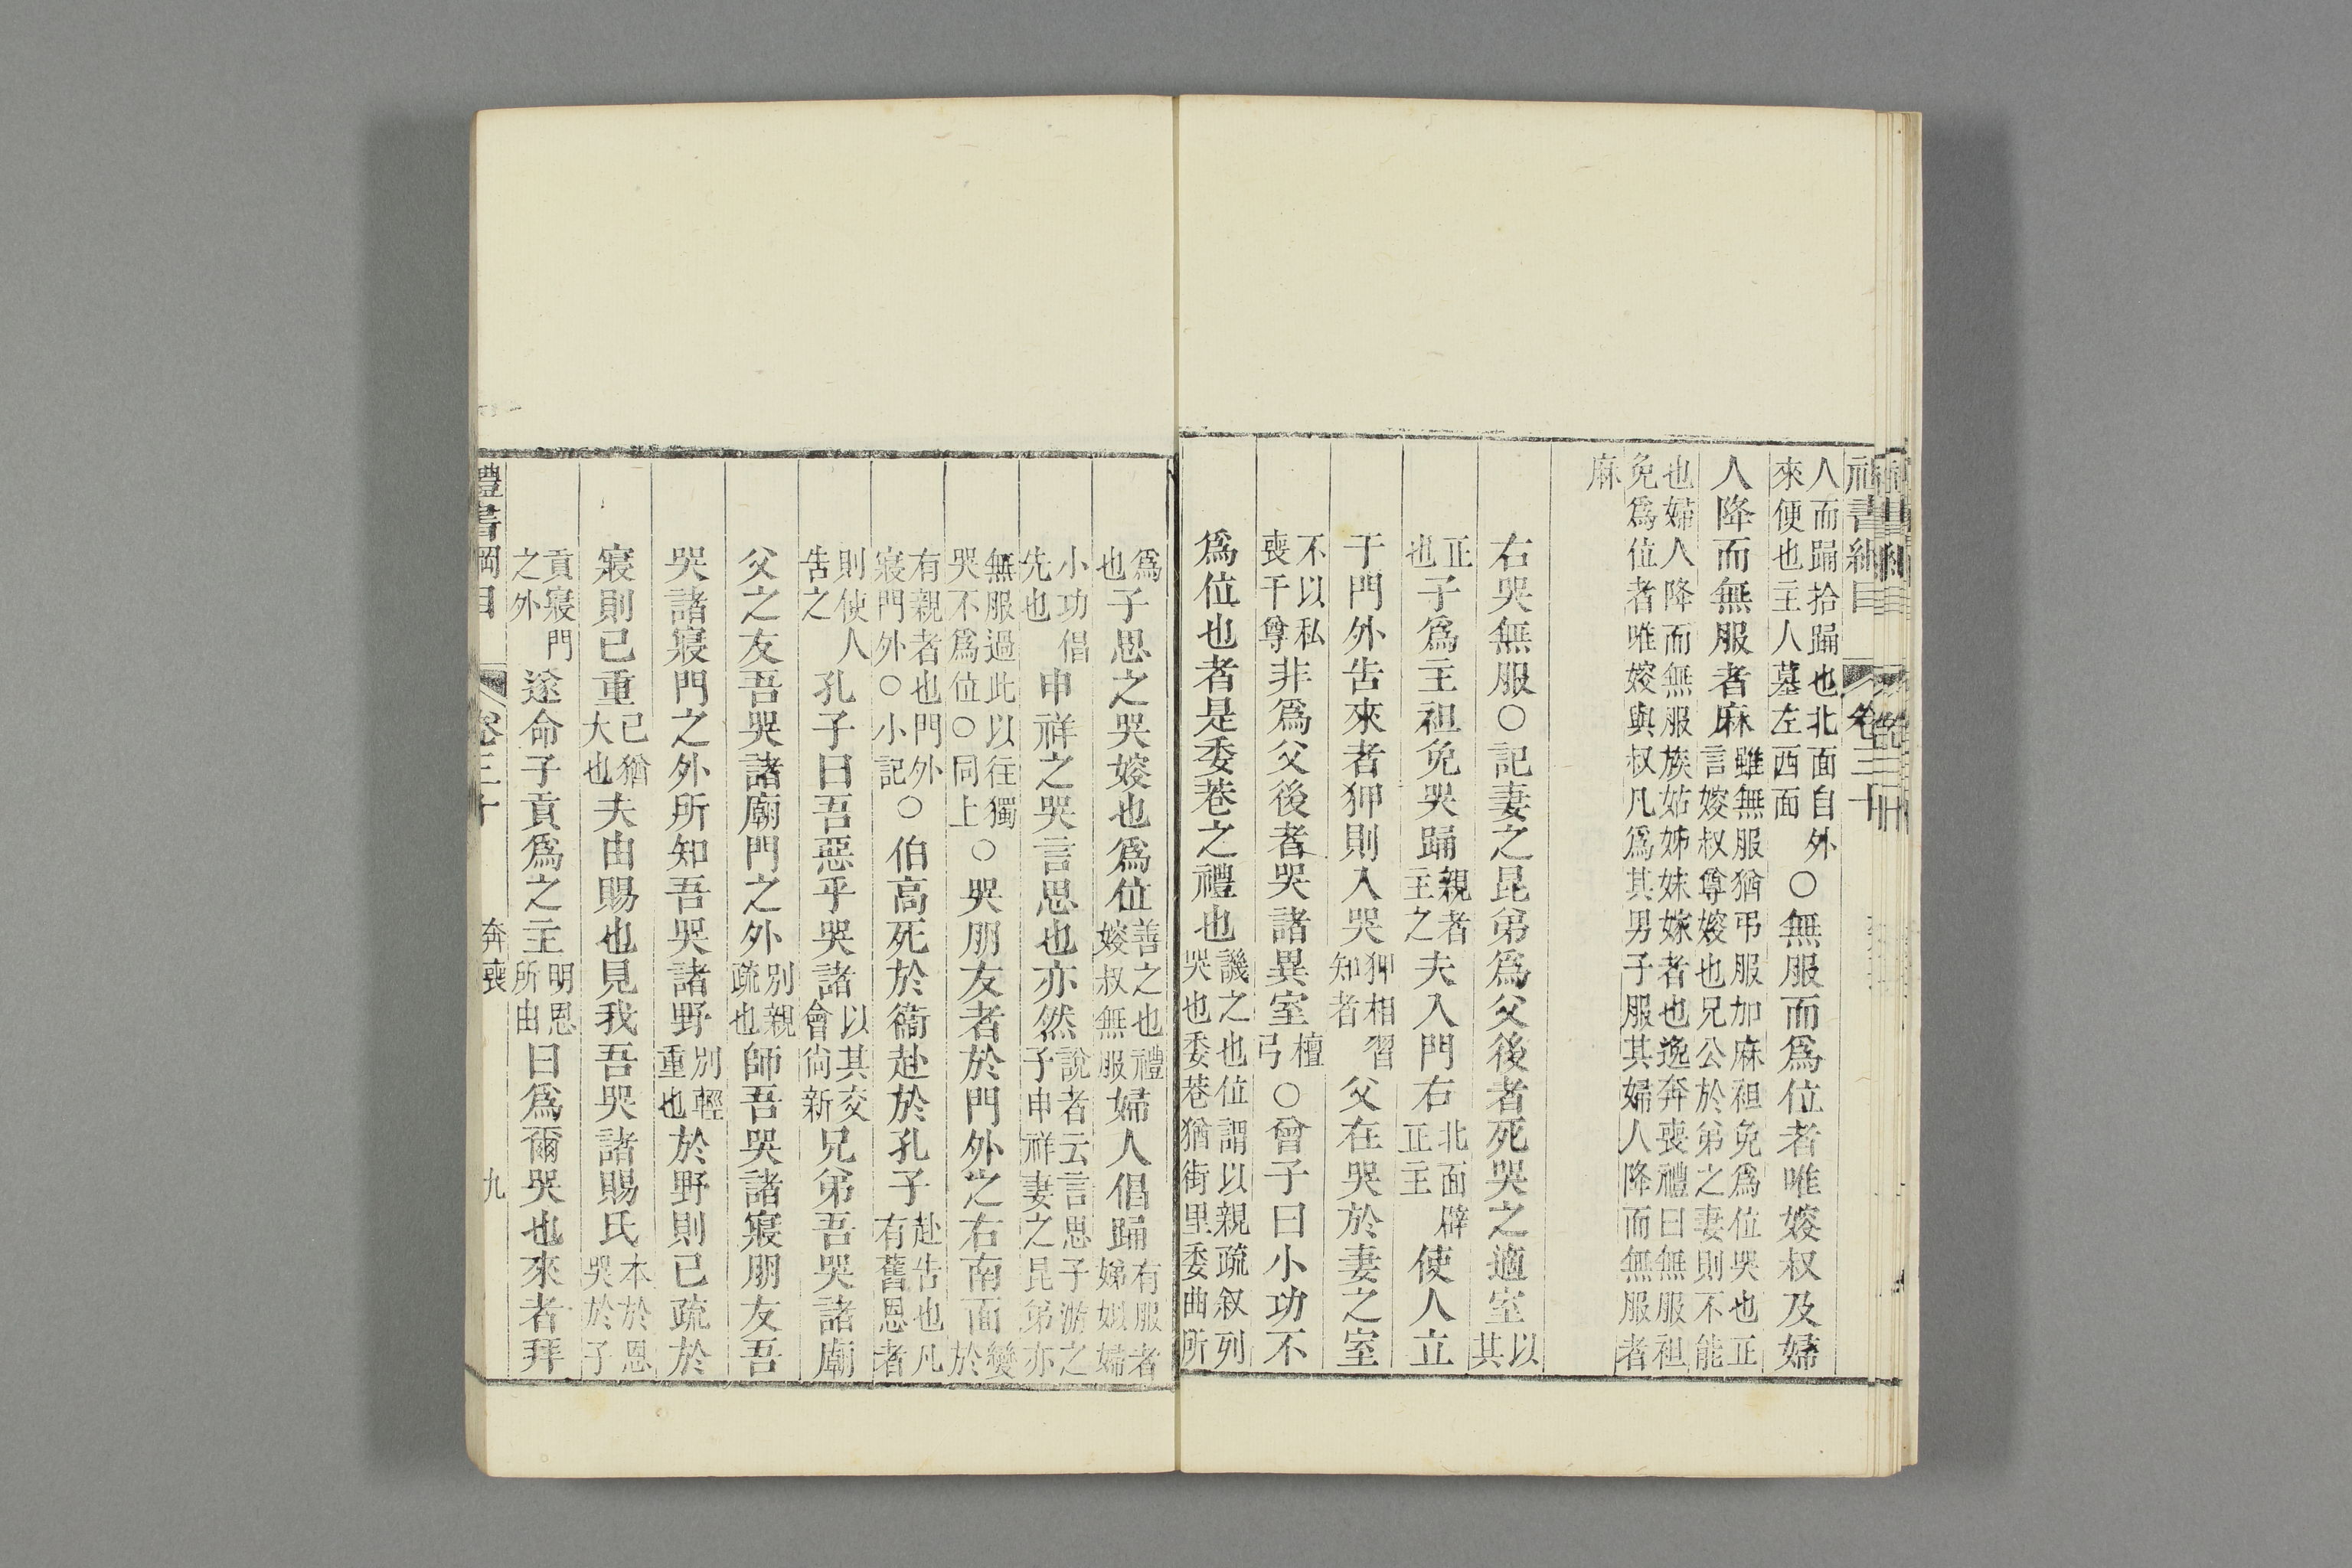 人而踊拾踊也北面自外來便也主人墓左西面○無服而爲位者唯嫂叔及婦
人降而無服者麻雖無服猶弔服加麻袒免爲位哭也正言嫂叔尊嫂也兄公於弟之妻則不能
也婦人降而無服族姑姊妹嫁者也逸奔喪禮曰無服袒免爲位者唯嫂與叔凡爲其男子服其婦人降而無服者
麻
右哭無服○記妻之昆弟爲父後者死哭之適室以其
正也子爲主袒免哭踊親者主之夫入門右北面辟正主使人立
于門外告來者狎則入哭狎相習知者父在哭於妻之室
不以私喪干尊非爲父後者哭諸異室檀弓○曾子曰小功不
爲位也者是委巷之禮也譏之也位謂以親疏叙列哭也委巷猶街里委曲所
爲也子思之哭嫂也爲位善之也禮嫂叔無服婦人倡踊有服者娣姒婦
小功倡先也申祥之哭言思也亦然說者云言思子游之子申祥妻之昆弟亦
無服過此以往獨哭不爲位○同上○哭朋友者於門外之右南面變於
有親者也門外寢門外○小記○伯高死於衞赴於孔子赴告也凡有舊恩者
則使人告之孔子曰吾惡乎哭諸以其交會尙新兄弟吾哭諸廟
父之友吾哭諸廟門之外別親疏也師吾哭諸寢朋友吾
哭諸寢門之外所知吾哭諸野別輕重也於野則已疏於
寢則已重已猶大也夫由賜也見我吾哭諸賜氏本於恩哭於子
貢寢門之外遂命子貢爲之主明恩所由曰爲爾哭也來者拜
禮書綱目 卷三十 奔喪 九